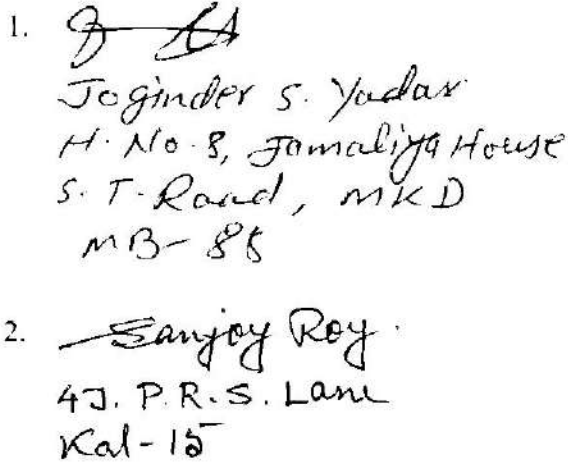 1.
Joginder S. Yadav
H. No. 8, Jamaliya House
S. T. Road, MKD
MB- 86
2. Sanjoy Roy.
4J. P. R. S. Lane
Kol - 15